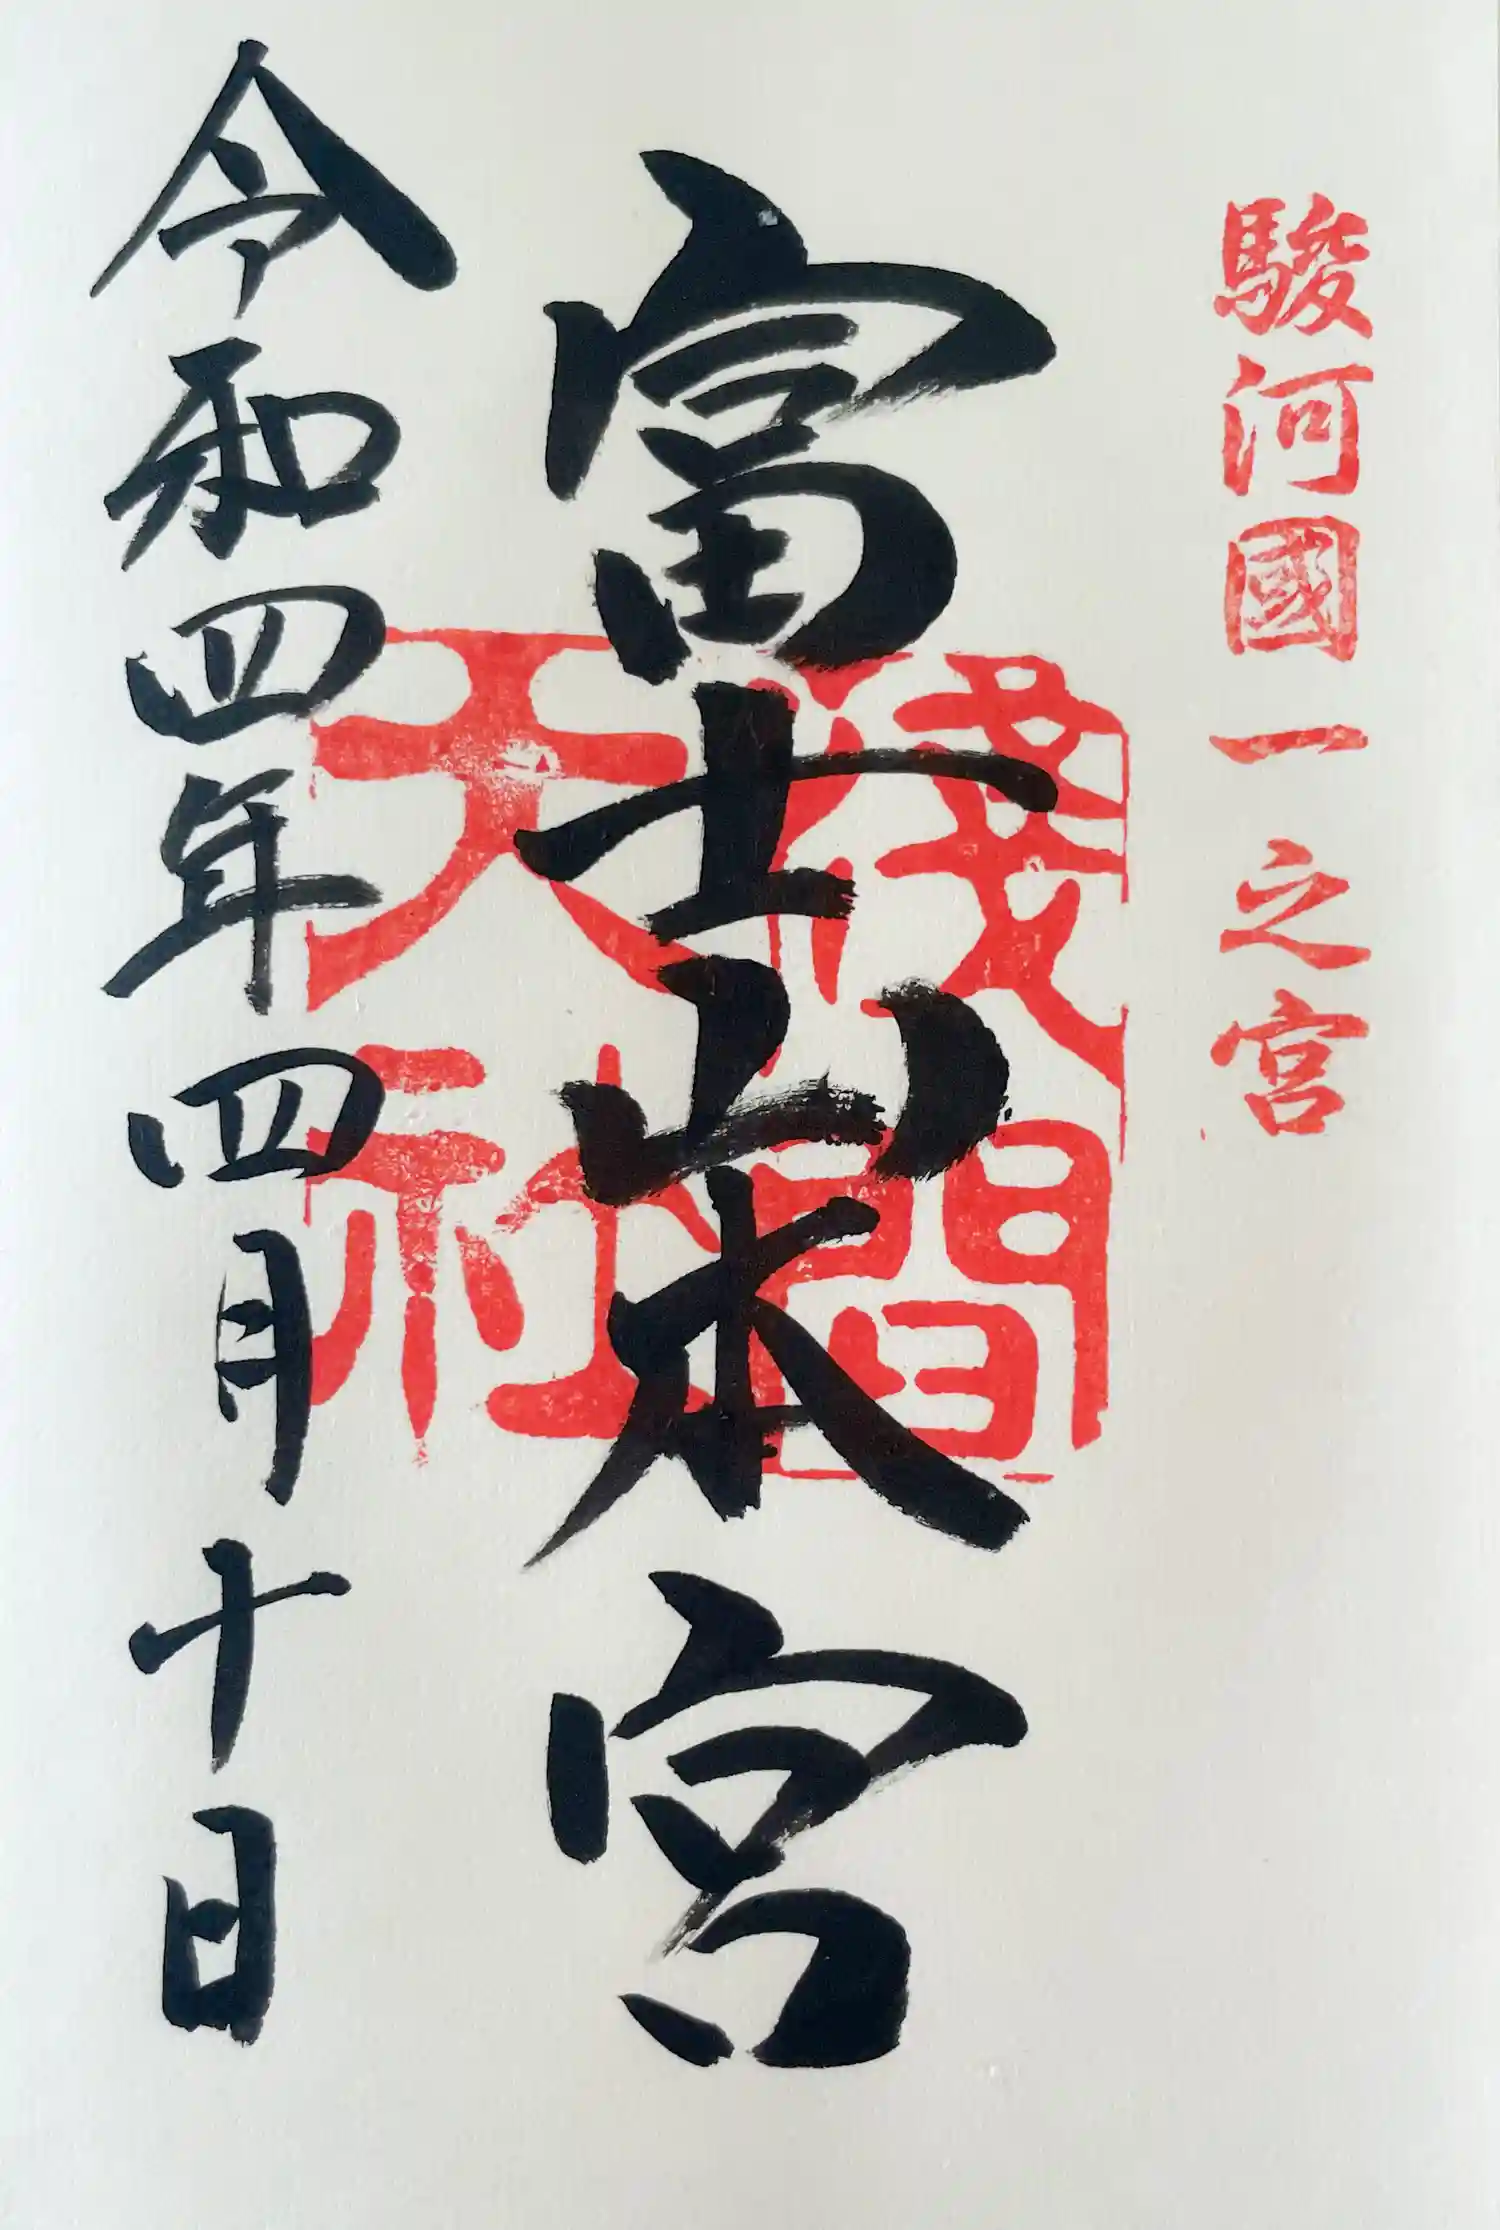 駿河國一之宮
富士山本宮
淺間
大社
令和四年四月十日